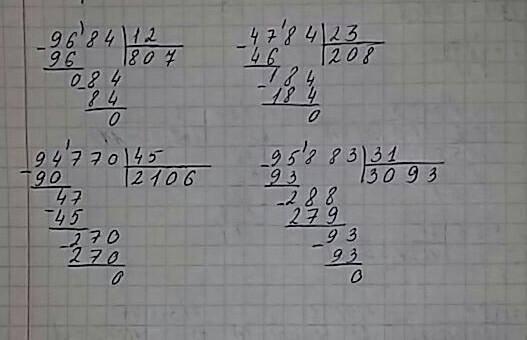 -96'84|12
96 |807
0-84
84
0
-47'84|23
46 |208
-184
184
0
-94'770|45
90 |2106
-47
45
-270
270
0
-95'883|31
93 |3093
-288
279
-93
93
0